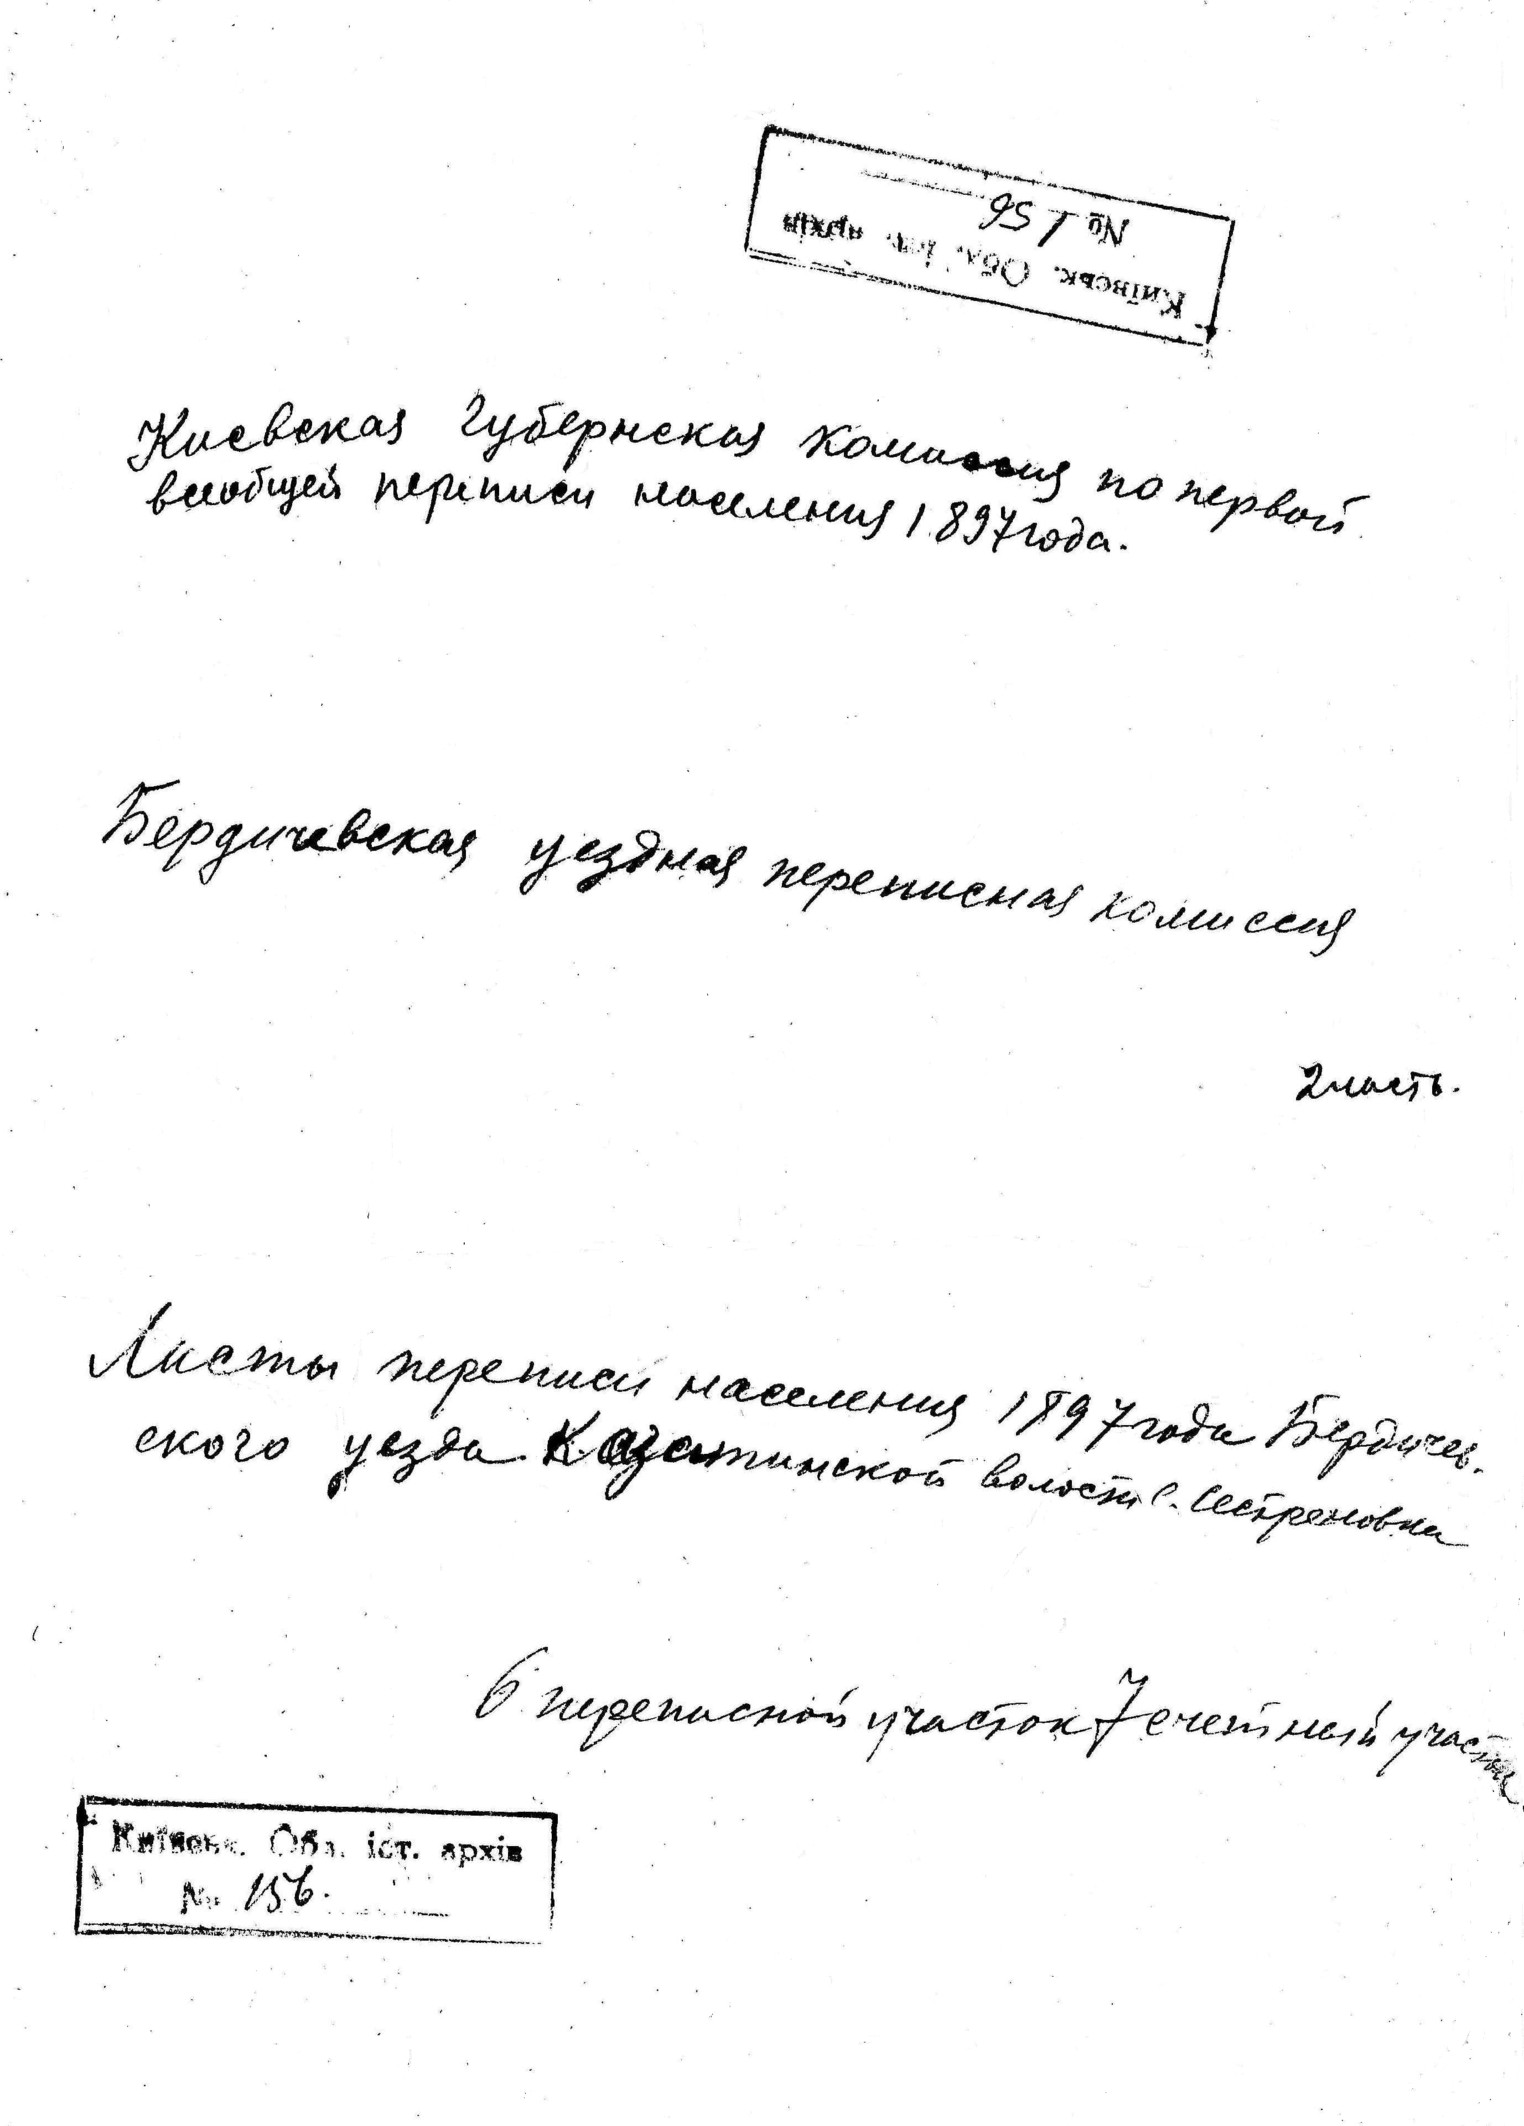 Київськ. Обл. іст. архів
№ 156
Киевская Губернская комиссия по первой
всеобщей переписи населения 1897 года.
Бердичевская уездная переписная комиссия
2 часть.
Листы переписи населения 1897 года Бердичев-
ского уезда Казатинской волости с. Сестреновка
6 переписной участок 7 счетный участок
Київськ. Обл. іст. архів
№ 156.